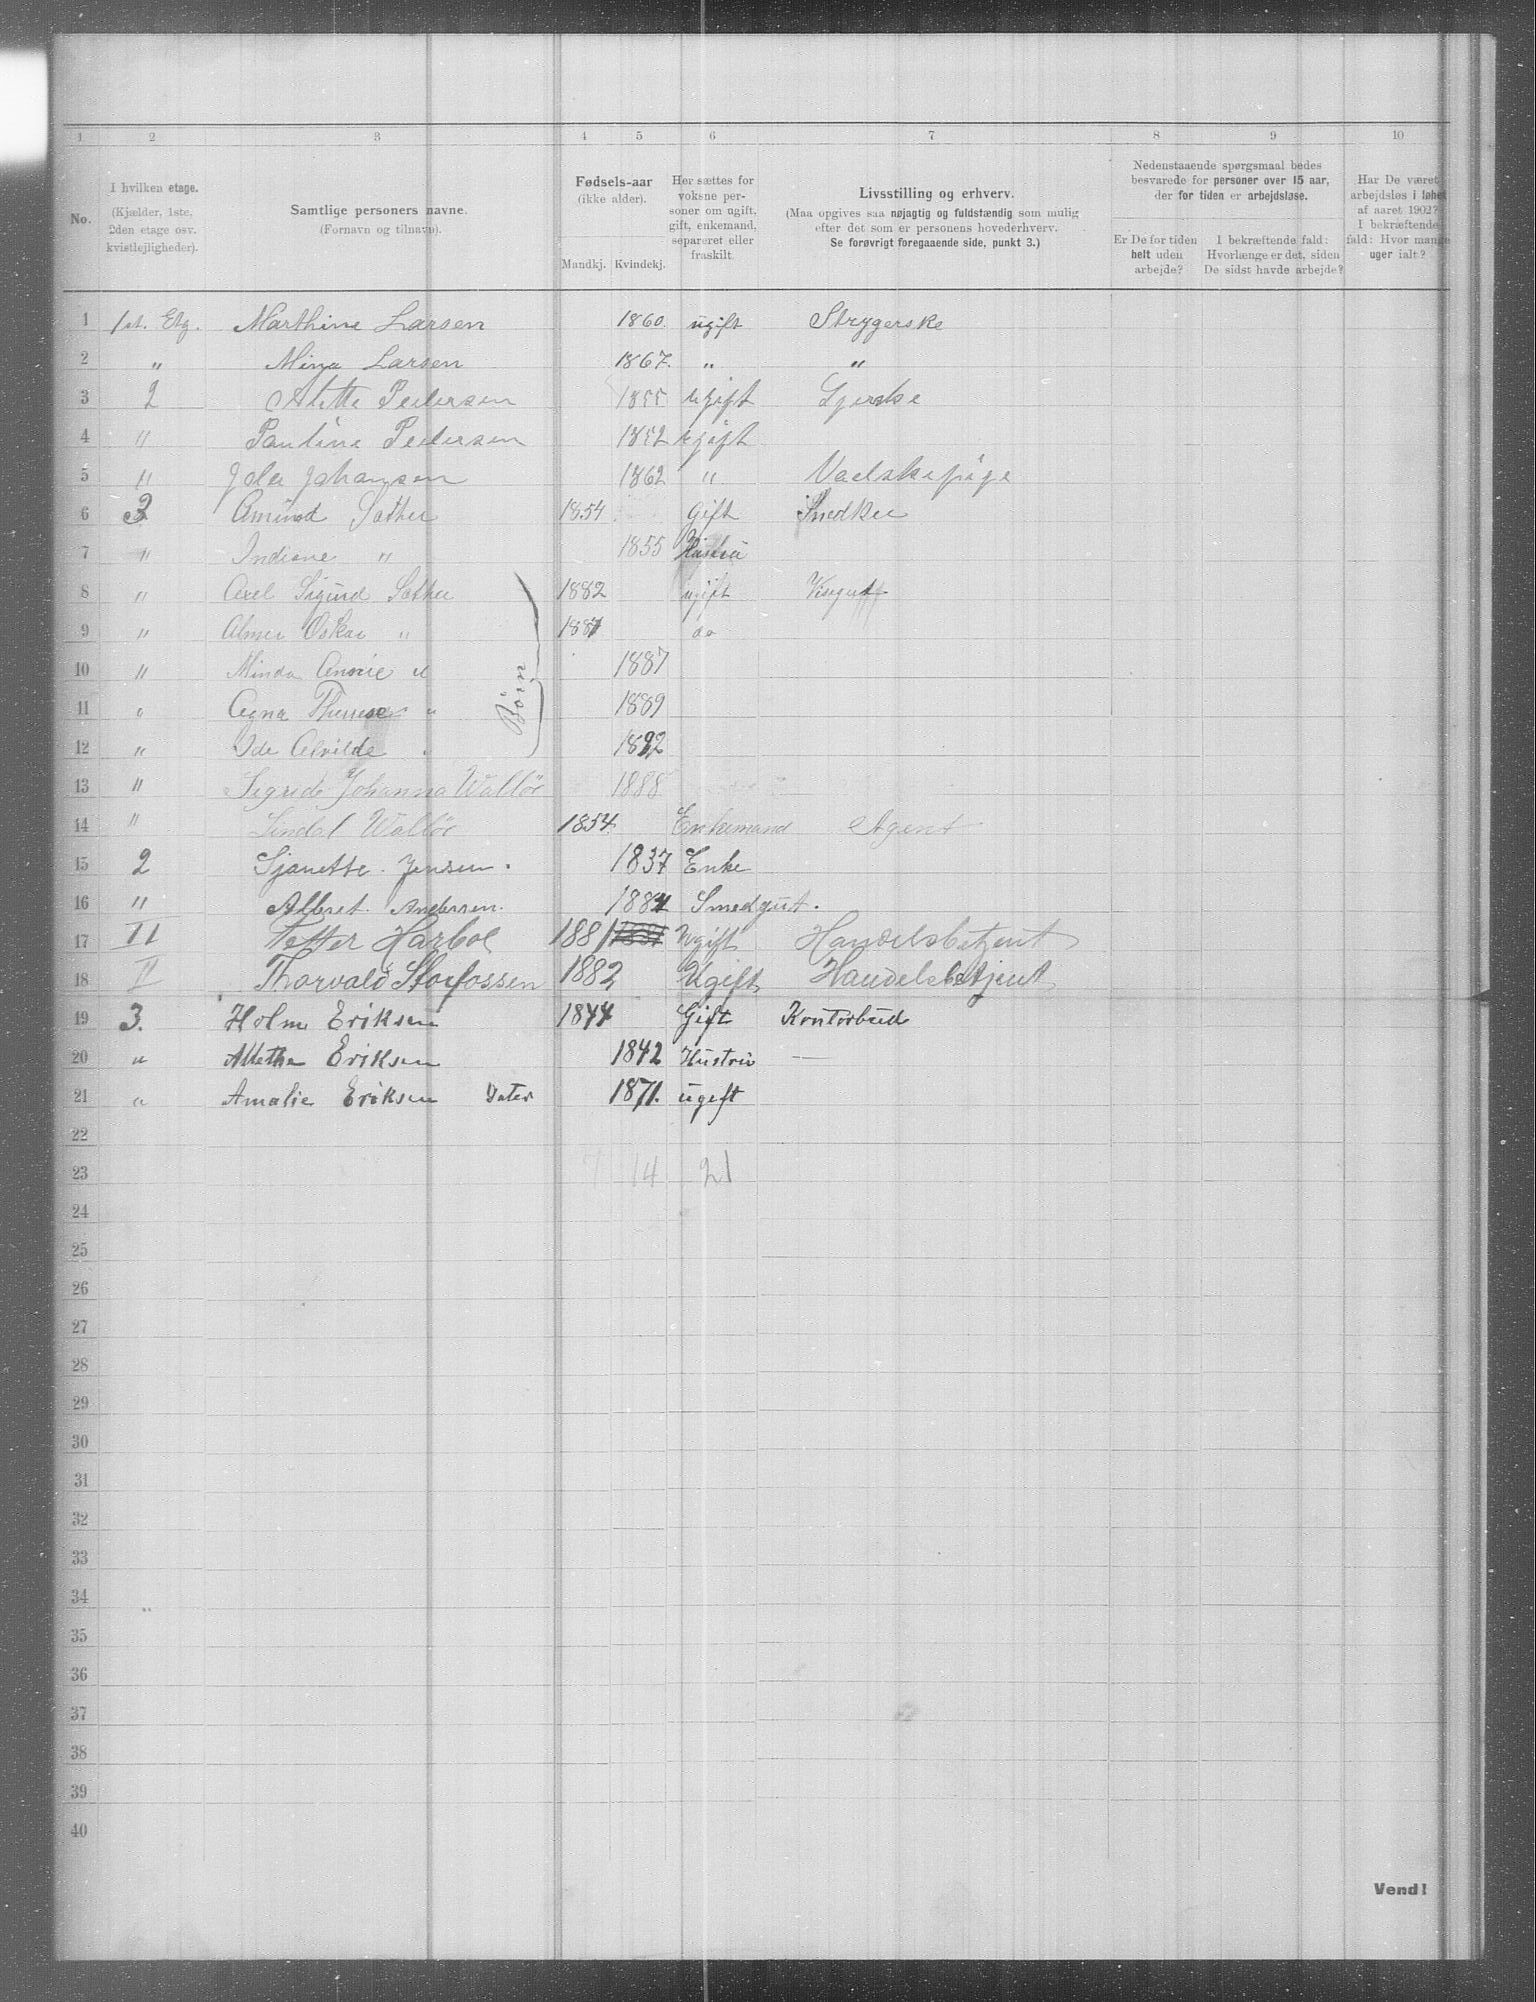 1 2 3 4 5 6 7 8 9 10
No.
I hvilken etage.
(Kjælder, 1ste,
2den etage osv.
kvistlejligheder).
Samtlige personers navne.
(Fornavn og tilnavn).
Fødsels-aar
(ikke alder).
Mandkj. Kvindekj.
Her sættes for
voksne per-
soner om ugift,
gift, enkemand,
separeret eller
fraskilt.
Livsstilling og erhverv.
(Maa opgives saa nøjagtig og fuldstændig som mulig
efter det som er personens hovederhverv.
Se forøvrigt foregaaende side, punkt 3.)
Nedenstaaende spørgsmaal bedes
besvarede for personer over 15 aar,
der for tiden er arbejdsløse.
Er De for tiden
helt uden
arbejde?
I bekræftende fald:
Hvorlænge er det, siden
De sidst havde arbejde?
Har De været
arbejdsløs i løbet
af aaret 1902?
I bekræftende
fald: Hvor mange
uger ialt?
1 1st. Etg. Marthine Larsen 1860. ugift Strygerske
2 " Mina Larsen 1867. " "
3 2 Alette Pedersen 1855 Ugift Syerske
4 " Pauline Pedersen 1852 Ugift
5 " Johansen 1862 " Vadskepige
6 3 Amund Sother 1854 Gift Snedker
7 " Indiane " 1855 Hustru
8 " Axel Sigurd Sother 1882 ugift Visegut
9 " Almer Oskar " 1887 do
10 " Minda Annie " 1887
11 " Agna Therese " 1889
12 " Ida Alvilde " 1892
Børn
13 " Sigrid Johanna Walløe 1888
14 " Walløe 1854 Enkemand Agent
15 2 Sjanette Jensen. 1837 Enke
16 " Albert Andersen. 1884 Smedgut.
17 II Petter Harboe 1881 Ugift Handelsbetjent
18 II Thorvald Storfossen 1882 Ugift Handelsbetjent
19 3. Holm Eriksen 1844 Gift Kontorbud
20 " Alethe Eriksen 1842 Hustru —
21 " Amalie Eriksen Dater 1871. ugift
22
23 7 14 21
24
25
26
27
28
29
30
31
32
33
34
35
36
37
38
39
40
Vend!